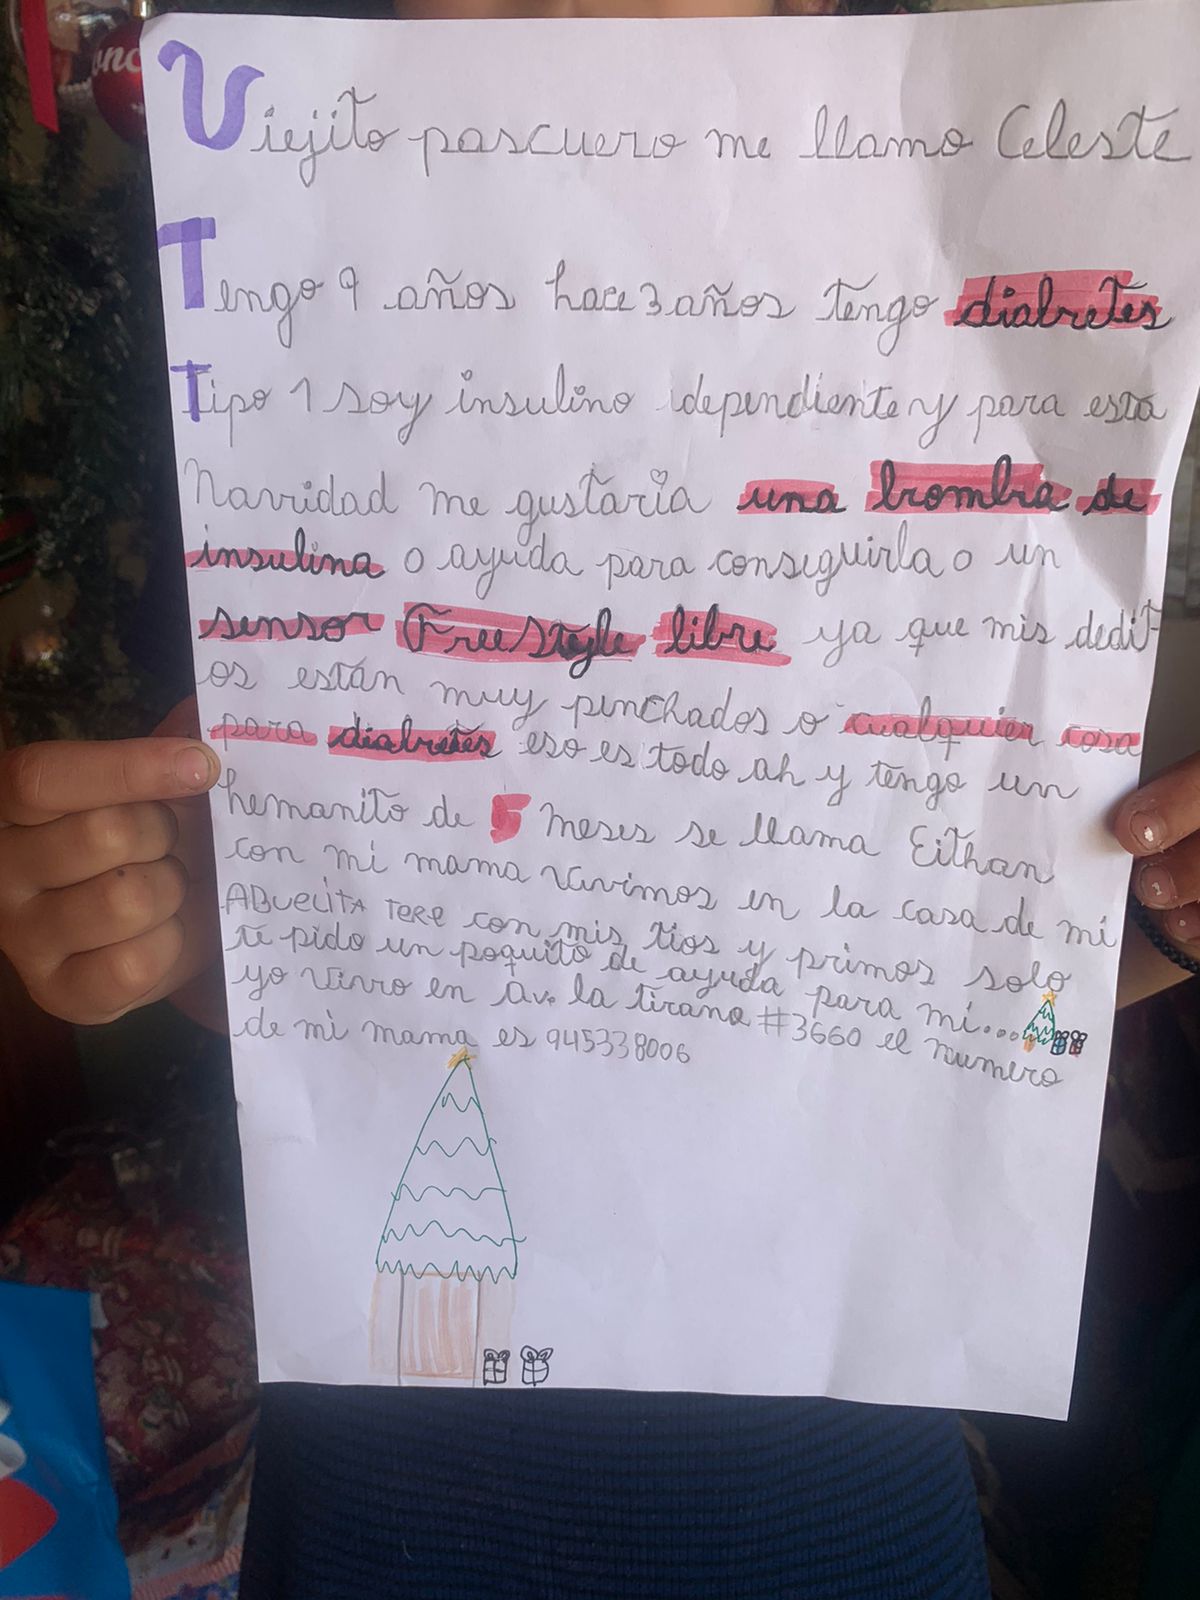 onc
Viejito pascuero me llamo Celeste
Tengo 9 años hace 3 años tengo diabretes
Tipo 1 soy insulino idependiente y para esta
Navridad me gustaría una brombra de
insulina o ayuda para conseguirla o un
sensor FreeStyle libre ya que mis dedit-
os están muy pinchados o cualquier cosa
para diabretes eso es todo ah y tengo un
hemanito de 5 meses se llama Eithan
con mi mama vivimos en la casa de mi
ABuelita TERE con mis tios y primos solo
te pido un poquito de ayuda para mi...
yo Vivro en Av. la tirana #3660 el numero
de mi mama es 945338006